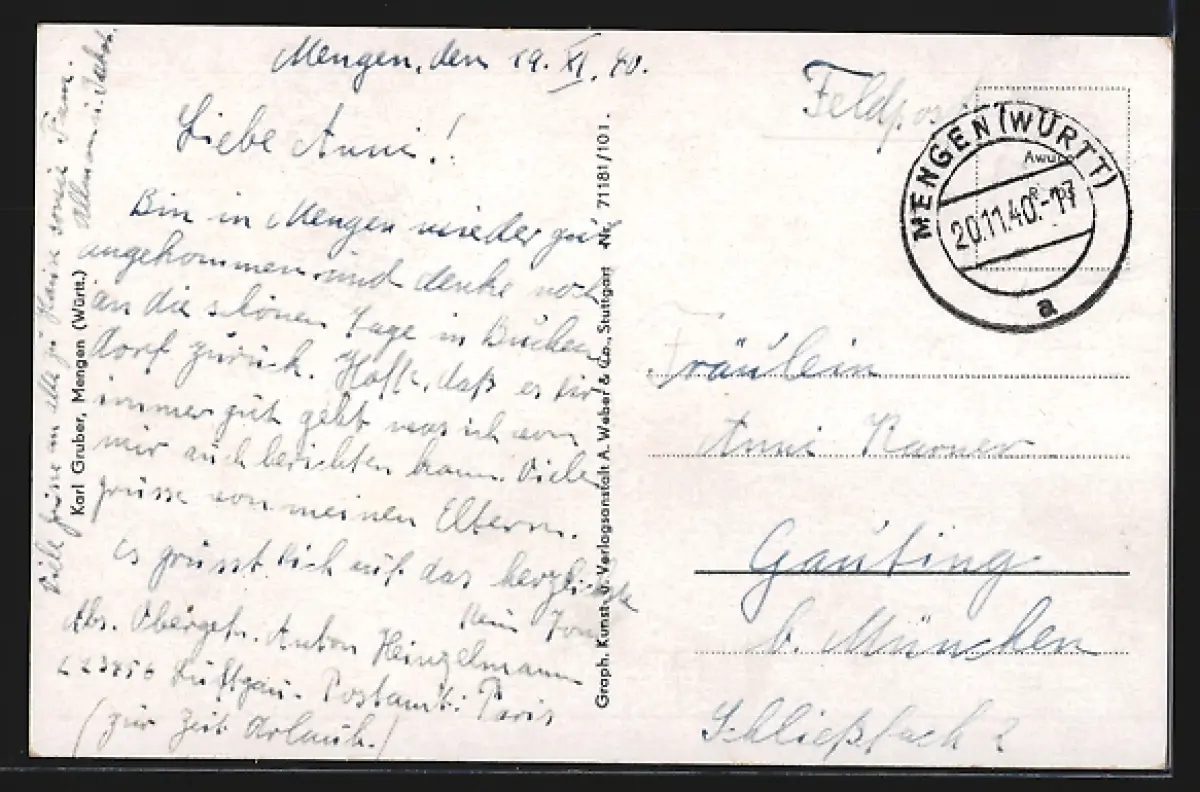 Mengen, den 19. XI. 40.
Liebe Anni!
Bin in Mengen wieder gut
angekommen und denke noch
an die schönen Tage in Buchen
dorf zurück. Hoffe, daß es dir
immer gut geht was ich von
mir auch berichten kann. Viele
grüsse von meinen Eltern.
Es grüsst dich auf das herzlichste
Dein Toni
Abs. Obergefr. Anton Heinzelmann
L 23456 Luftgau-Postamt: Paris
(zur Zeit Urlaub.)
Viele grüsse an alle zu Hause sowie Fam.
Karl Gruber, Mengen (Württ.)
Graph. Kunst- u. Verlagsanstalt A. Weber & Co., Stuttgart Nr. 71181/101.
Feldpost
MENGEN (WÜRTT)
20.11.40.-17
a
Fräulein
Anni Karner
Gauting
b. München
Schließfach 2